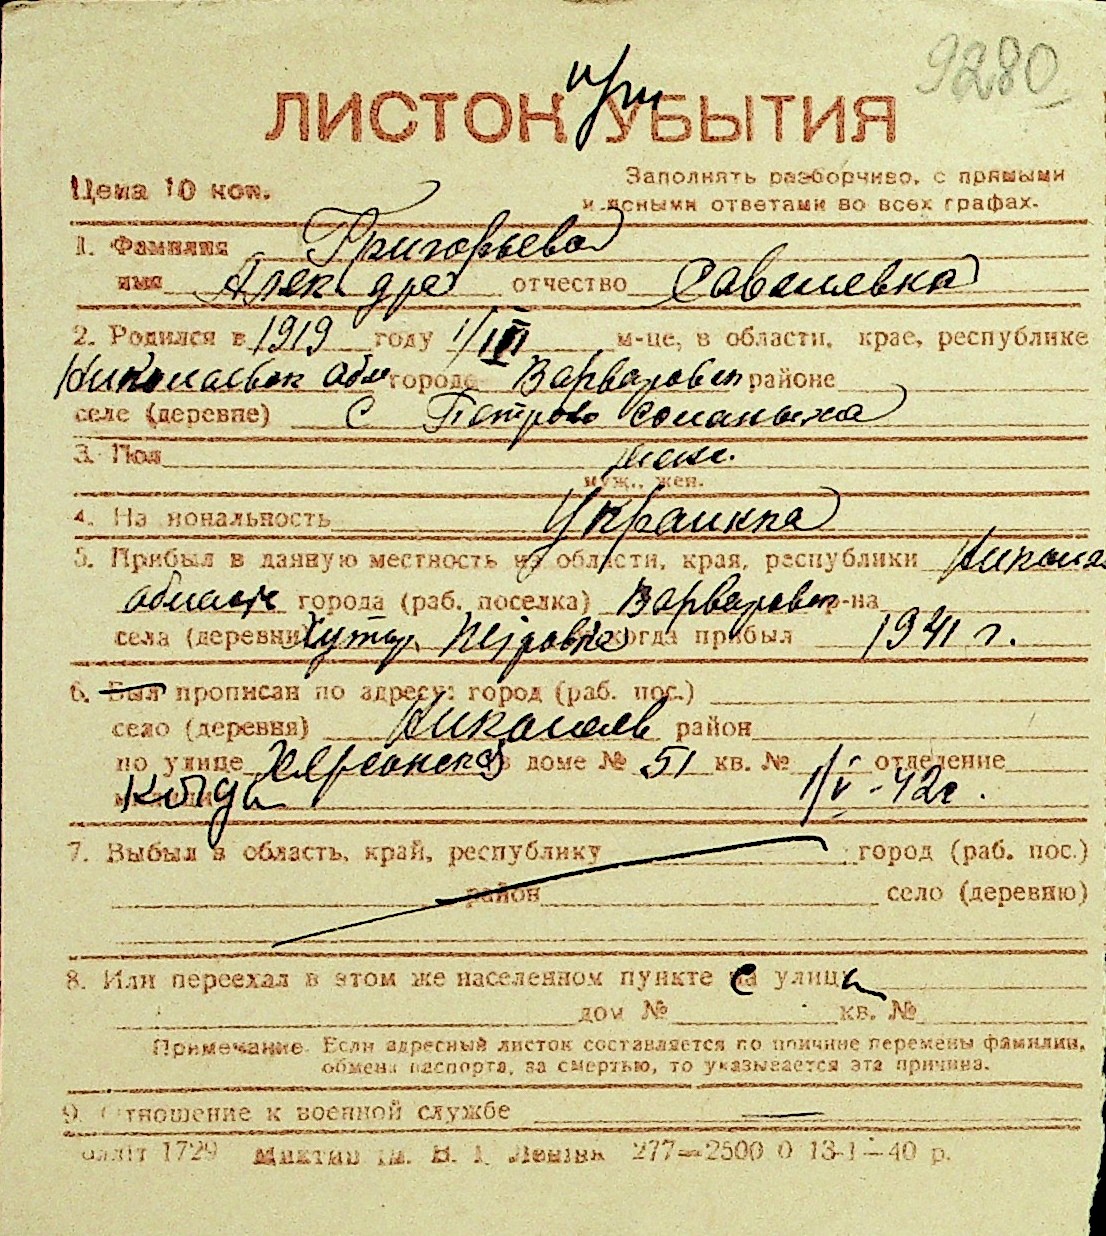 9280
при
ЛИСТОК УБЫТИЯ
Цена 10 коп.
Заполнять разборчиво, с прямыми
и ясными ответами во всех графах.
1. Фамилия Григорьева
имя Александра отчество Савельевна
2. Родился в 1919 году 1/III м-це, в области, крае, республике
Николаевск обл города Варваровск районе
селе (деревне) с Петрово Соланыха
3. Пол женс.
муж., жен.
4. Национальность Украинка
5. Прибыл в данную местность из области, края, республики Никола
области города (раб. поселка) Варваровск р-на
села (деревни) Хутор Петровка когда прибыл 1941 г.
6. Был прописан по адресу: город (раб. пос.)
село (деревня) Николаев район
по улице Херсонская в доме № 51 кв. № отделение
Когда 1/V-42г.
7. Выбыл в область, край, республику город (раб. пос.)
район село (деревню)
8. Или переехал в этом же населенном пункте с улицы
дом № кв. №
Примечание. Если адресный листок составляется по причине перемены фамилии,
обмена паспорта, за смертью, то указывается эта причина.
9. Отношение к военной службе —
1729 им. В. І. Леніна 277—2500 0 13-І-40 р.